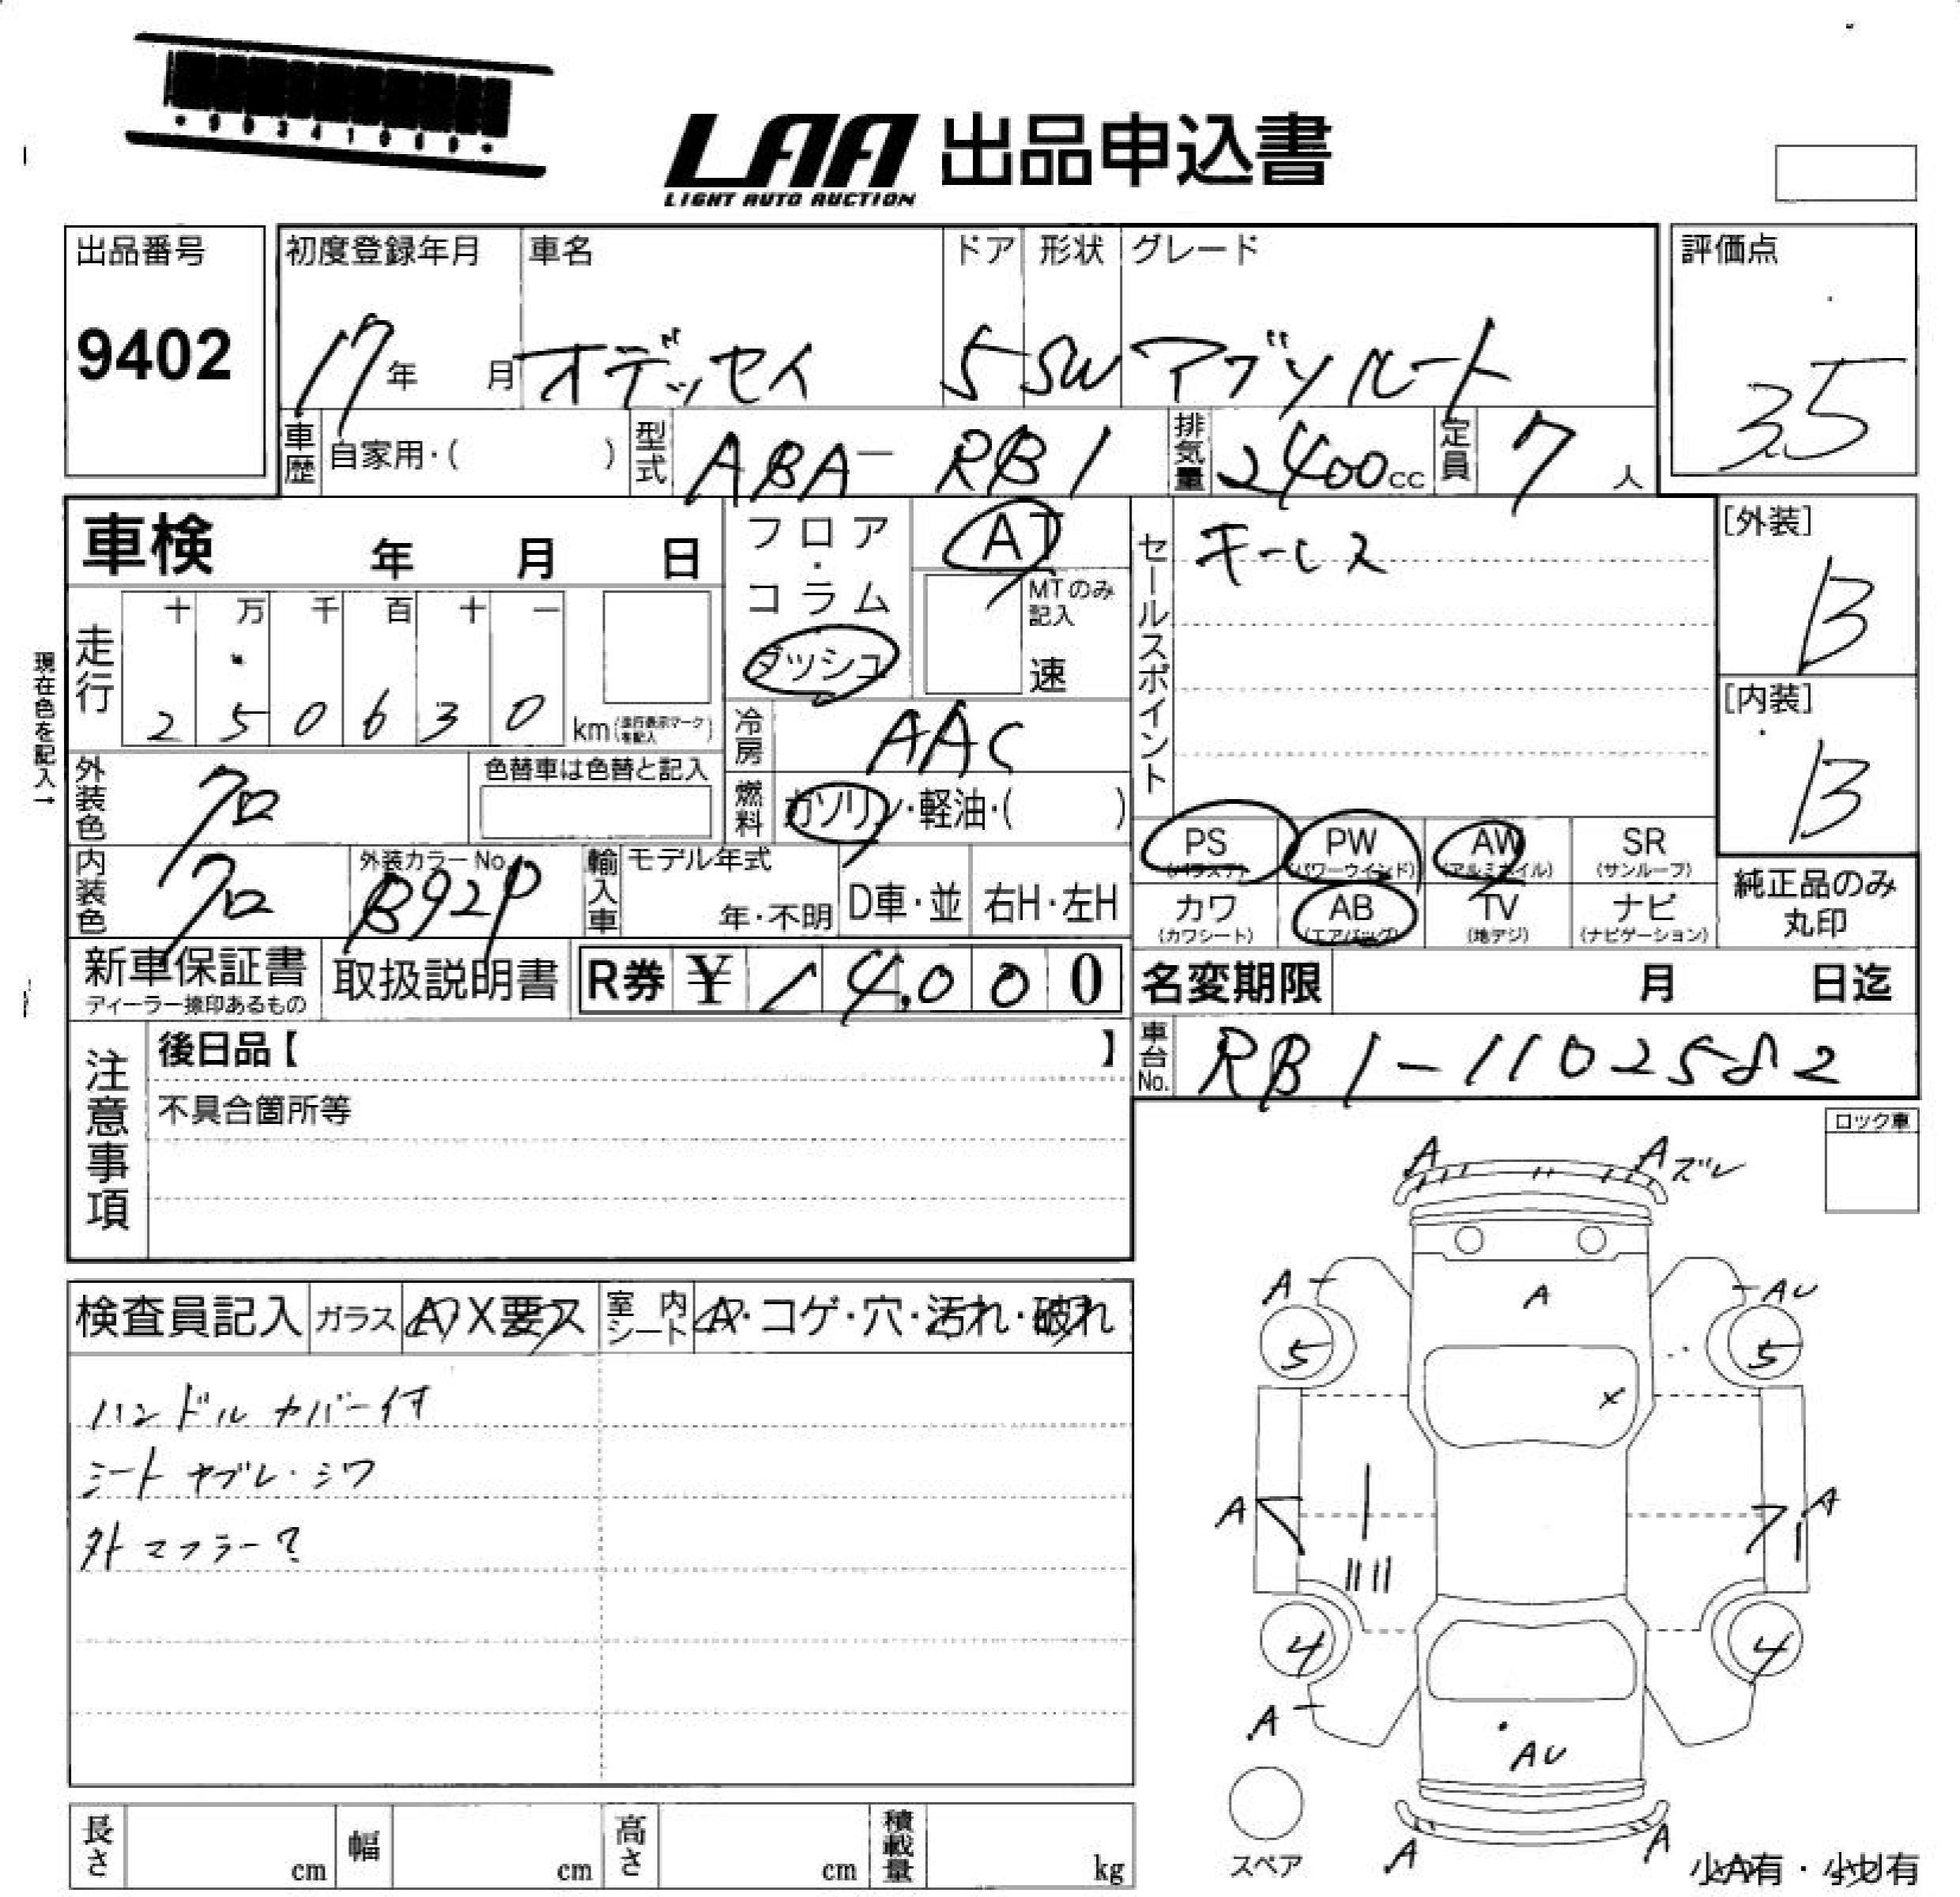 • 9 0 3 4 1 0 6 0 •
LAA 出品申込書
LIGHT AUTO AUCTION
出品番号 初度登録年月 車名 ドア 形状 グレード 評価点
9402 17年 月 オデッセイ 5 SW アブソルート 3.5
車歴 自家用・( ) 型式 ABA-RB1 排気量 2400cc 定員 7人
車検 年 月 日
フロア・コラム ダッシュ
AT
MTのみ記入
速
セールスポイント キーレス
[外装] B
[内装] B
現在色を記入→
走行 十 万 千 百 十 一
2 5 0 6 3 0 km(走行表示マークを記入)
冷房 AAC
外装色 クロ 色替車は色替と記入
燃料 ガソリン・軽油・( )
内装色 クロ 外装カラーNo. B92P
輸入車 モデル年式 年・不明 D車・並 右H・左H
PS (パワステ) PW (パワーウインド) AW (アルミホイル) SR (サンルーフ)
カワ (カワシート) AB (エアバッグ) TV (地デジ) ナビ (ナビゲーション)
純正品のみ丸印
新車保証書 取扱説明書 R券 ¥ 14,000 名変期限 月 日迄
ディーラー捺印あるもの
注意事項 後日品【 】
車台No. RB1-1102582
不具合箇所等
ロック車
A A ズレ
A A AU
5 5
X
検査員記入 ガラス A・X要ス 室内シート A・コゲ・穴・汚れ・破れ
ハンドルカバー付
シートヤブレ・シワ
外マフラー?
A A
4 4
A AU
スペア A A 小A有・小U有
長さ cm 幅 cm 高さ cm 積載量 kg